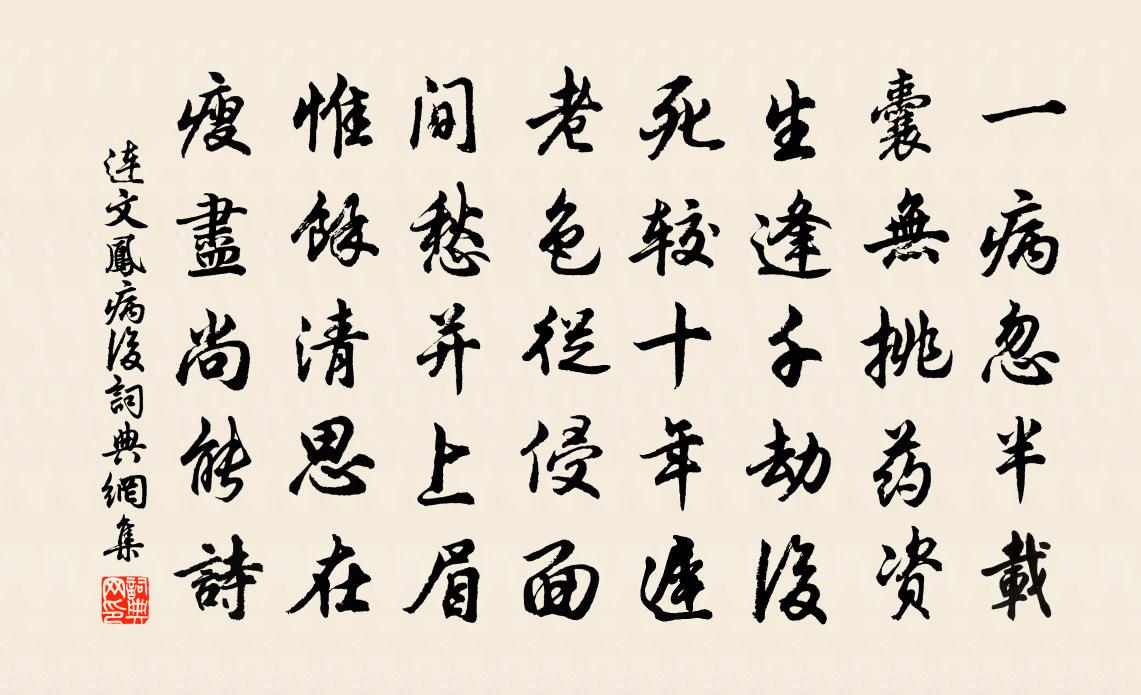 一病忽半載
囊無挑药资
生逢千劫後
死较十年遲
老色従侵面
間愁并上眉
惟餘清思在
瘦盡尚能詩
連文鳳病後詞典網集
詞典網印